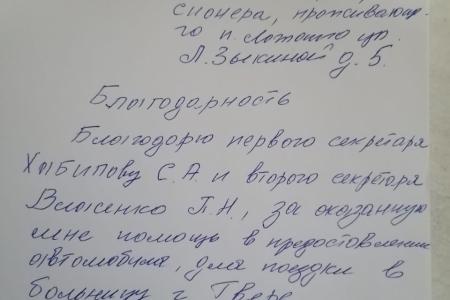 сионера, проживающе-
го п. Лотошино ул.
Л. Зыкиной д. 5.
Благодарность
Благодарю первого секретаря
С. А. и второго секретаря
Власенко П. Н., за оказанную
мне помощь в предоставлении
автомобиля, для поездки в
больницу г. Твери